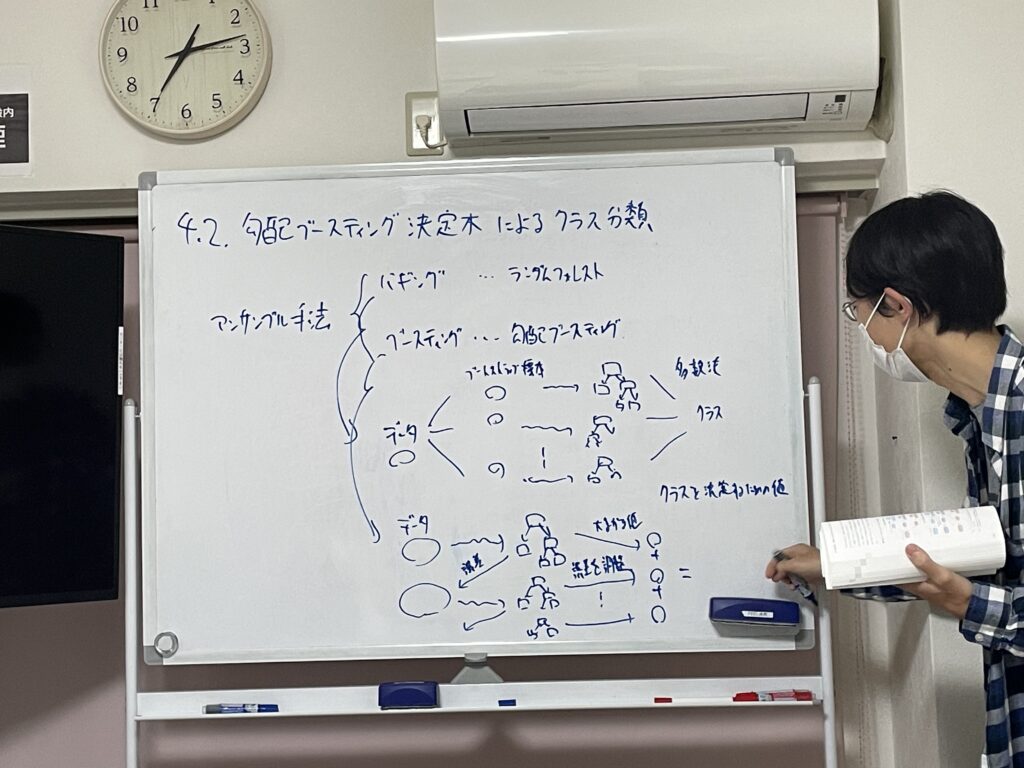 11
10
2
9
3
8
4
7
6
5
内
4.2. 勾配ブースティング決定木によるクラス分類
アンサンブル手法
バギング … ランダムフォレスト
ブースティング … 勾配ブースティング
ブートストラップ標本
多数決
データ
クラス
クラスを決定するための値
データ
大まかな値
誤差
誤差を調整
+
+
=